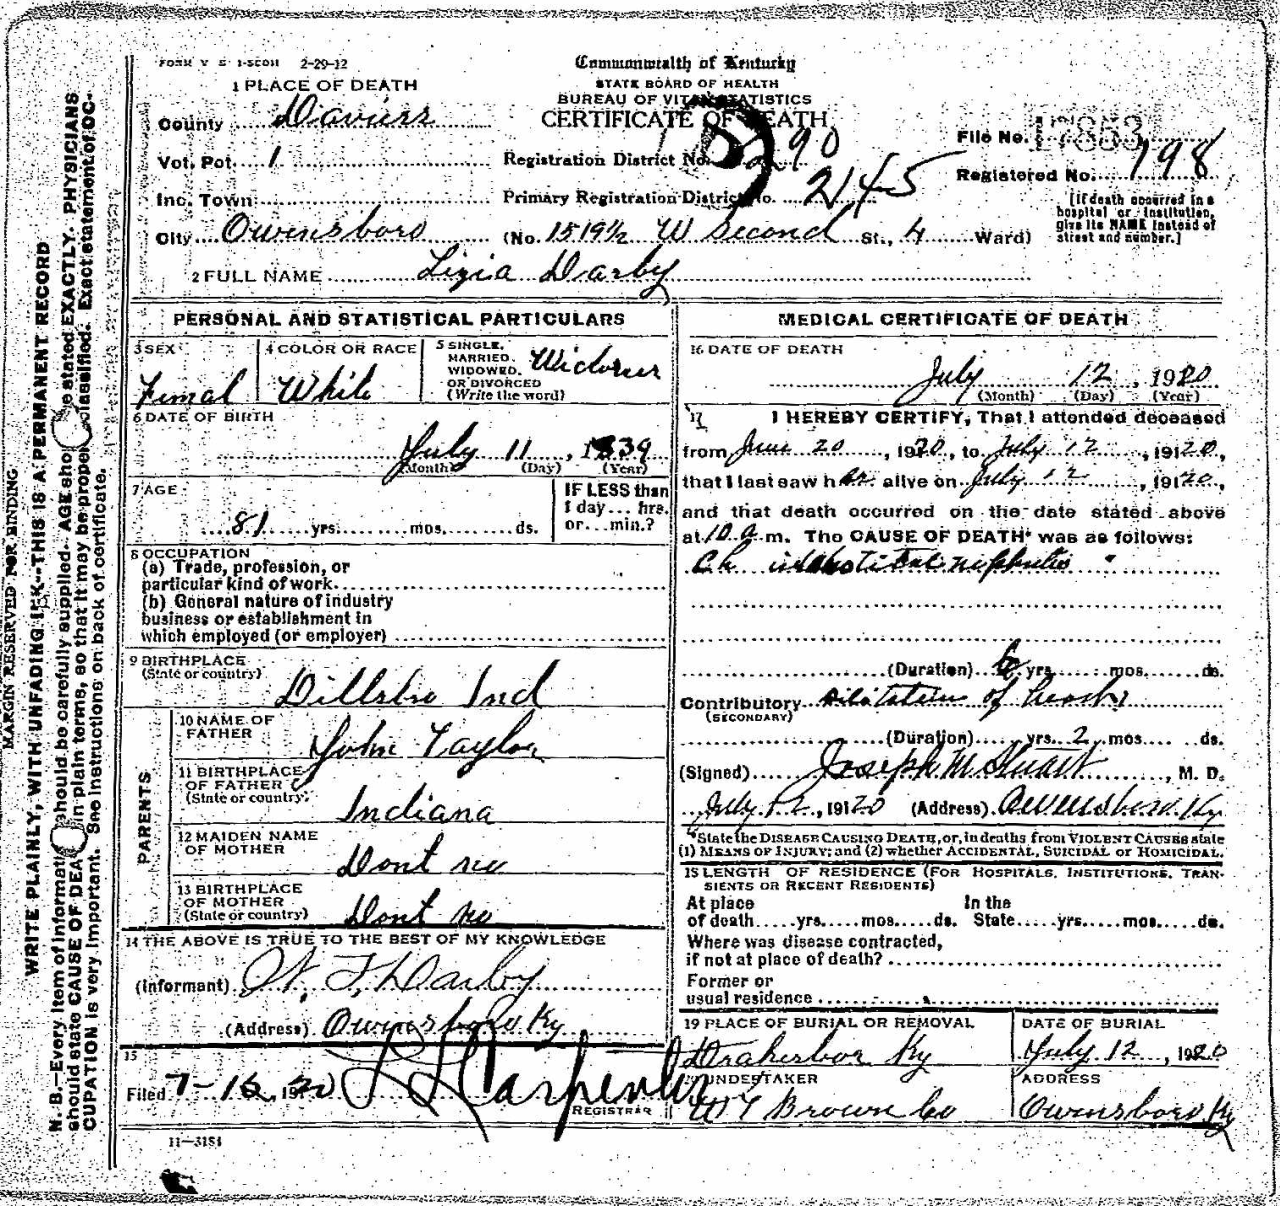 FORM V S 1-50M 2-29-12
Commonwealth of Kentucky
STATE BOARD OF HEALTH
BUREAU OF VITAL STATISTICS
CERTIFICATE OF DEATH
1 PLACE OF DEATH
County Daviess
File No. 17853
Vot. Pct. 1 Registration District No. 290
Registered No. 198
Inc. Town Primary Registration District No. 2145
City Owensboro (No. 1519½ W Second St., 4 Ward)
[If death occurred in a hospital or institution, give its NAME instead of street and number.]
2 FULL NAME Lizia Darby
PERSONAL AND STATISTICAL PARTICULARS
3 SEX Femal
4 COLOR OR RACE White
5 SINGLE, MARRIED, WIDOWED, OR DIVORCED (Write the word)
6 DATE OF BIRTH
July 11, 1839
(Month) (Day) (Year)
7 AGE
81 yrs. mos. ds.
IF LESS than 1 day... hrs. or... min.?
8 OCCUPATION
(a) Trade, profession, or
particular kind of work
(b) General nature of industry
business or establishment in
which employed (or employer)
9 BIRTHPLACE
(State or country)
Dillsbro Ind
PARENTS
10 NAME OF FATHER John Taylor
11 BIRTHPLACE OF FATHER (State or country) Indiana
12 MAIDEN NAME OF MOTHER Dont no
13 BIRTHPLACE OF MOTHER (State or country) Dont no
14 THE ABOVE IS TRUE TO THE BEST OF MY KNOWLEDGE
(Informant) Darby
(Address) Owensboro Ky
15
Filed 7-16, 1920 Carpenter
REGISTRAR
11-3184
MEDICAL CERTIFICATE OF DEATH
16 DATE OF DEATH
July 12, 1920
(Month) (Day) (Year)
17 I HEREBY CERTIFY, That I attended deceased
from June 20, 1920, to July 12, 19120,
that I last saw her alive on July 12, 19120,
and that death occurred on the date stated above
at 10 a m. The CAUSE OF DEATH* was as follows:
Ch nephritis
(Duration) yrs. mos. ds.
Contributory Dilitation of heart
(SECONDARY)
(Duration) yrs. 2 mos. ds.
(Signed) Joseph M Stuart, M. D.
July 12, 19120 (Address) Owensboro Ky
*State the DISEASE CAUSING DEATH, or, in deaths from VIOLENT CAUSES state
(1) MEANS OF INJURY; and (2) whether ACCIDENTAL, SUICIDAL or HOMICIDAL.
18 LENGTH OF RESIDENCE (FOR HOSPITALS, INSTITUTIONS, TRAN-
SIENTS OR RECENT RESIDENTS)
At place In the
of death yrs. mos. ds. State yrs. mos. ds.
Where was disease contracted,
if not at place of death?
Former or
usual residence
19 PLACE OF BURIAL OR REMOVAL DATE OF BURIAL
Drakesboro Ky July 12, 1920
20 UNDERTAKER ADDRESS
Brown Co Owensboro Ky
MARGIN RESERVED FOR BINDING
WRITE PLAINLY, WITH UNFADING INK--THIS IS A PERMANENT RECORD
N. B.—Every item of information should be carefully supplied. AGE should be stated EXACTLY. PHYSICIANS
should state CAUSE OF DEATH in plain terms, so that it may be properly classified. Exact statement of OC-
CUPATION is very important. See instructions on back of certificate.